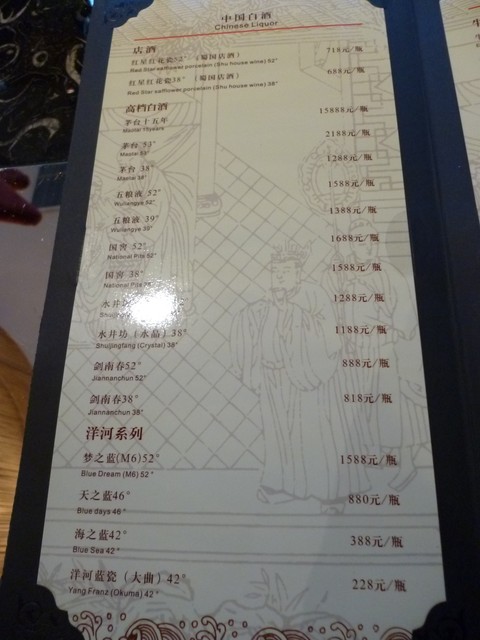 中国白酒
Chinese Liquor
店酒
红星红花瓷52°（蜀国店酒） 718元/瓶
Red Star safflower porcelain (Shu house wine) 52°
红星红花瓷38°（蜀国店酒） 688元/瓶
Red Star safflower porcelain (Shu house wine) 38°
高档白酒
茅台十五年 15888元/瓶
Maotai 15years
茅台 53° 2188元/瓶
Maotai 53°
茅台 38° 1288元/瓶
Maotai 38°
五粮液 52° 1588元/瓶
Wuliangye 52°
五粮液 39° 1388元/瓶
Wuliangye 39°
国窖 52° 1688元/瓶
National Pits 52°
国窖 38° 1588元/瓶
National Pits
水井 1288元/瓶
水井坊（水晶）38° 1188元/瓶
Shuijingfang (Crystal) 38°
剑南春52° 888元/瓶
Jiannanchun 52°
剑南春38° 818元/瓶
Jiannanchun 38°
洋河系列
梦之蓝(M6)52° 1588元/瓶
Blue Dream (M6) 52°
天之蓝46° 880元/瓶
Blue days 46°
海之蓝42° 388元/瓶
Blue Sea 42°
洋河蓝瓷（大曲）42° 228元/瓶
Yang Franz (Okuma) 42°